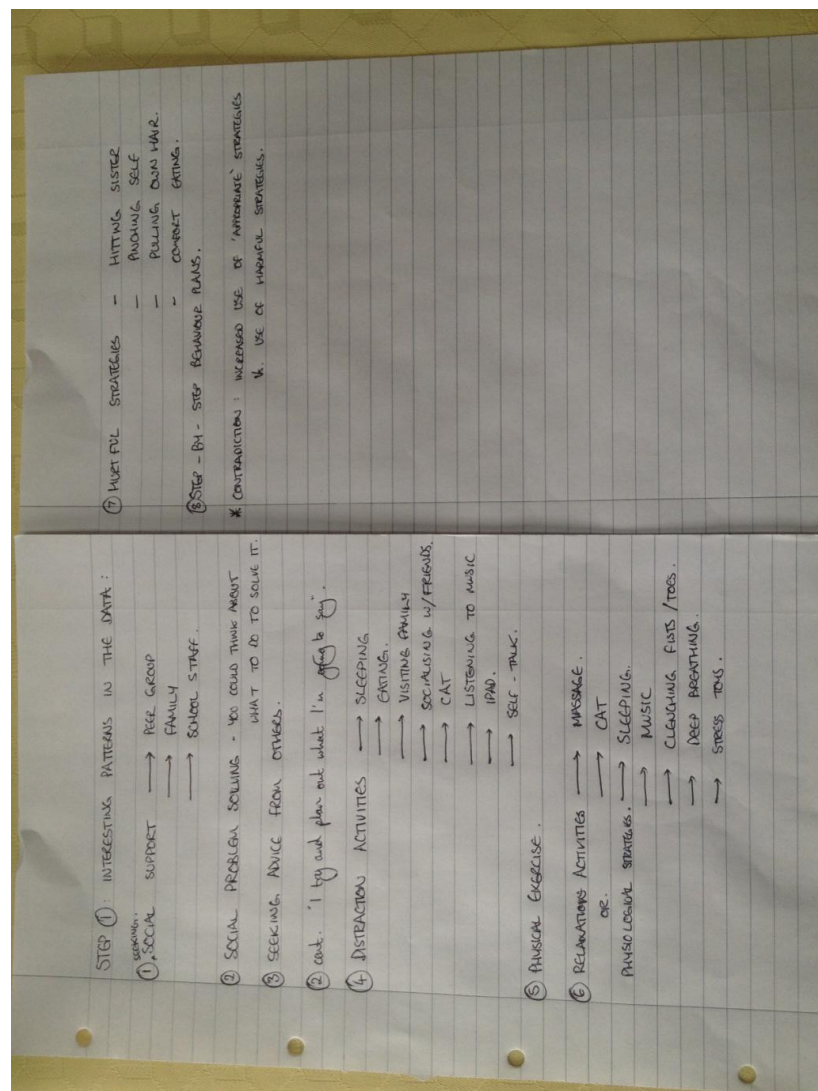 STEP ① : INTERESTING PATTERNS IN THE DATA :
SEEKING.
①. SOCIAL SUPPORT → PEER GROUP
→ FAMILY
→ SCHOOL STAFF.
② SOCIAL PROBLEM SOLVING - YOU COULD THINK ABOUT
WHAT TO DO TO SOLVE IT.
③ SEEKING ADVICE FROM OTHERS.
② cont. "I try and plan out what I'm going to say".
④ DISTRACTION ACTIVITIES → SLEEPING
→ EATING.
→ VISITING FAMILY
→ SOCIALISING W/FRIENDS.
→ CAT
→ LISTENING TO MUSIC
→ IPAD.
→ SELF-TALK.
⑤ PHYSICAL EXERCISE.
⑥ RELAXATIONS ACTIVITIES → MASSAGE.
OR. → CAT
PHYSIOLOGICAL STRATEGIES. → SLEEPING.
→ MUSIC
→ CLENCHING FISTS/TOES.
→ DEEP BREATHING.
→ STRESS TOYS.
⑦ HURTFUL STRATEGIES - HITTING SISTER
- PINCHING SELF
- PULLING OWN HAIR.
- COMFORT EATING.
⑧ STEP-BY-STEP BEHAVIOUR PLANS.
* CONTRADICTION : INCREASED USE OF 'APPROPRIATE' STRATEGIES
USE OF HARMFUL STRATEGIES.